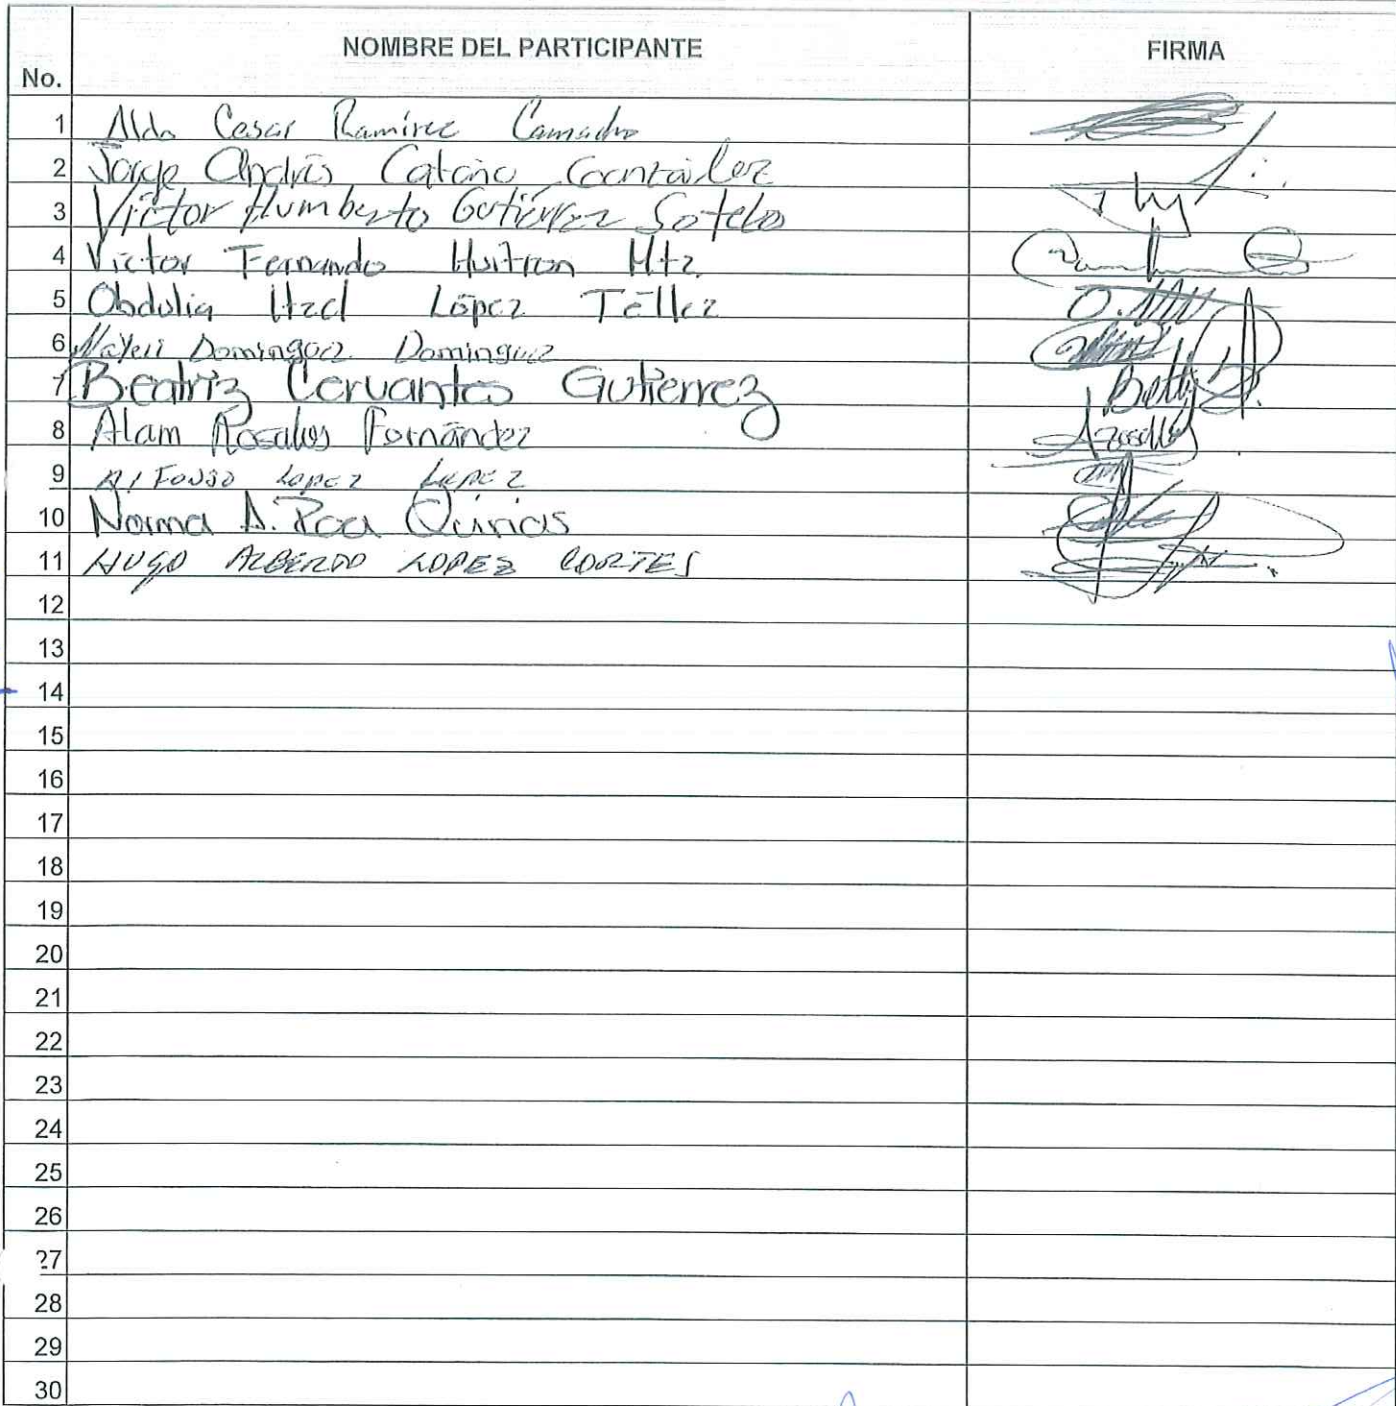 No. NOMBRE DEL PARTICIPANTE FIRMA
1 Aldo Cesar Ramírez Camacho
2 Jorge Andrés González
3 Víctor Humberto Gutiérrez Sotelo
4 Victor Fernando Huitron Mtz.
5 Obdulia Itzel López Téllez
6 Nayeli Dominguez Dominguez
7 Beatriz Cervantes Gutierrez Betty
8 Alam Rosales Fernández
9 Alfonso Lopez Lopez
10 Norma A. Roa
11 HUGO ALBERTO LOPEZ CORTES
12
13
14
15
16
17
18
19
20
21
22
23
24
25
26
27
28
29
30